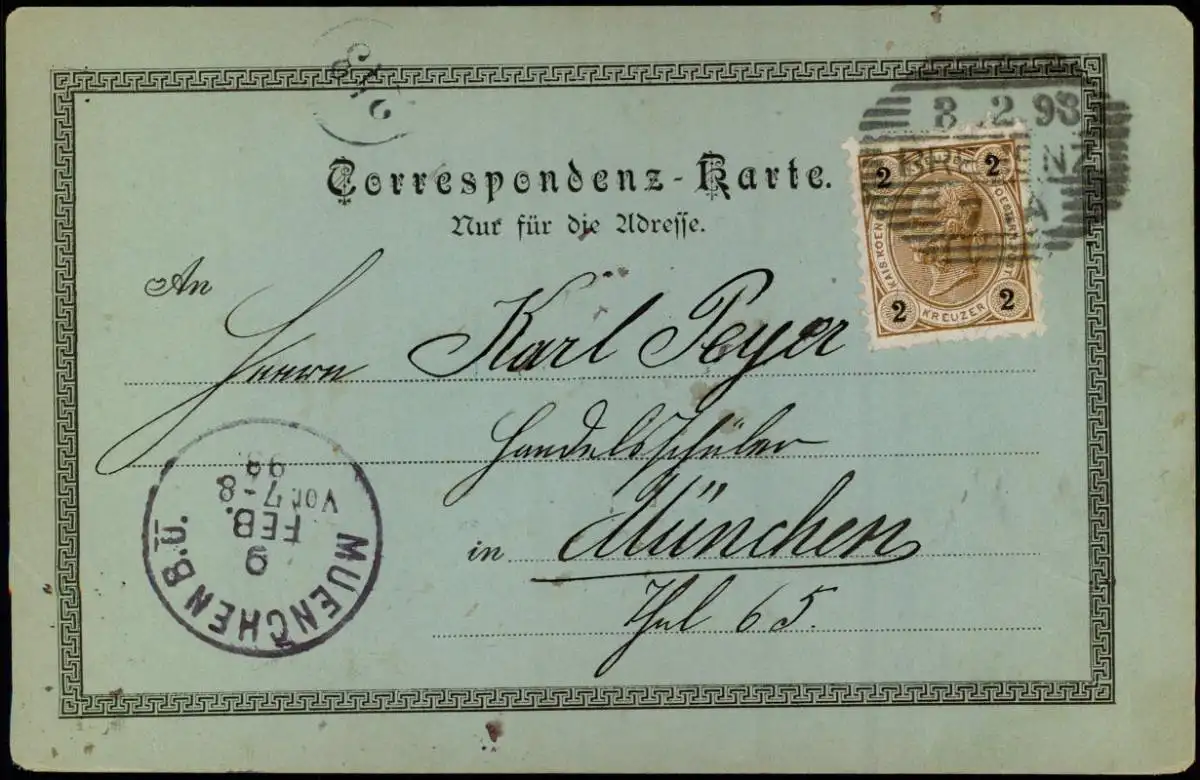 8.2.98
Correspondenz-Karte.
Nur für die Adresse.
2 2
KAIS. KOEN. OESTERR. POST.
2 KREUZER 2
An
Herrn Karl Peyer
Handelsschüler
in München
Thal 65.
MUENCHEN B.Ü.
9
FEB.
Vor. 7-8
98